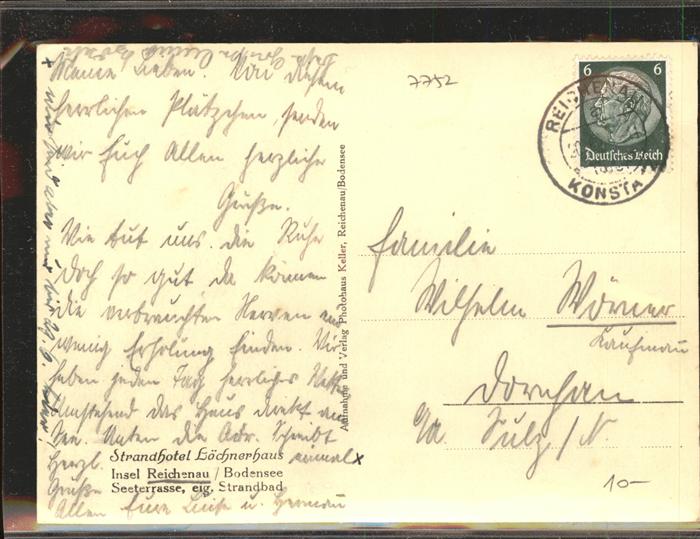 Meine Lieben! Von diesem
herrlichen Plätzchen, senden
wir Euch Allen herzliche
Grüße.
Wie tut uns die Ruhe
doch so gut da können
die verbrauchten Nerven ein
wenig Erholung finden. Wir
haben jeden Tag herrliches
Umstehend das Haus direkt am
See. Unten die Adr. Schreibt
einmal x
Herzl.
Grüße
Allen Eure Luise u. Hermann
Strandhotel Löchnerhaus
Insel Reichenau / Bodensee
Seeterrasse, eig. Strandbad
Aufnahme und Verlag Photohaus Keller, Reichenau/Bodensee
7752
6 6
Deutsches Reich
REICHENAU
KONSTA
Familie
Wilhelm Wörner
Kaufmann
Dornhan
Sulz / N.
10-